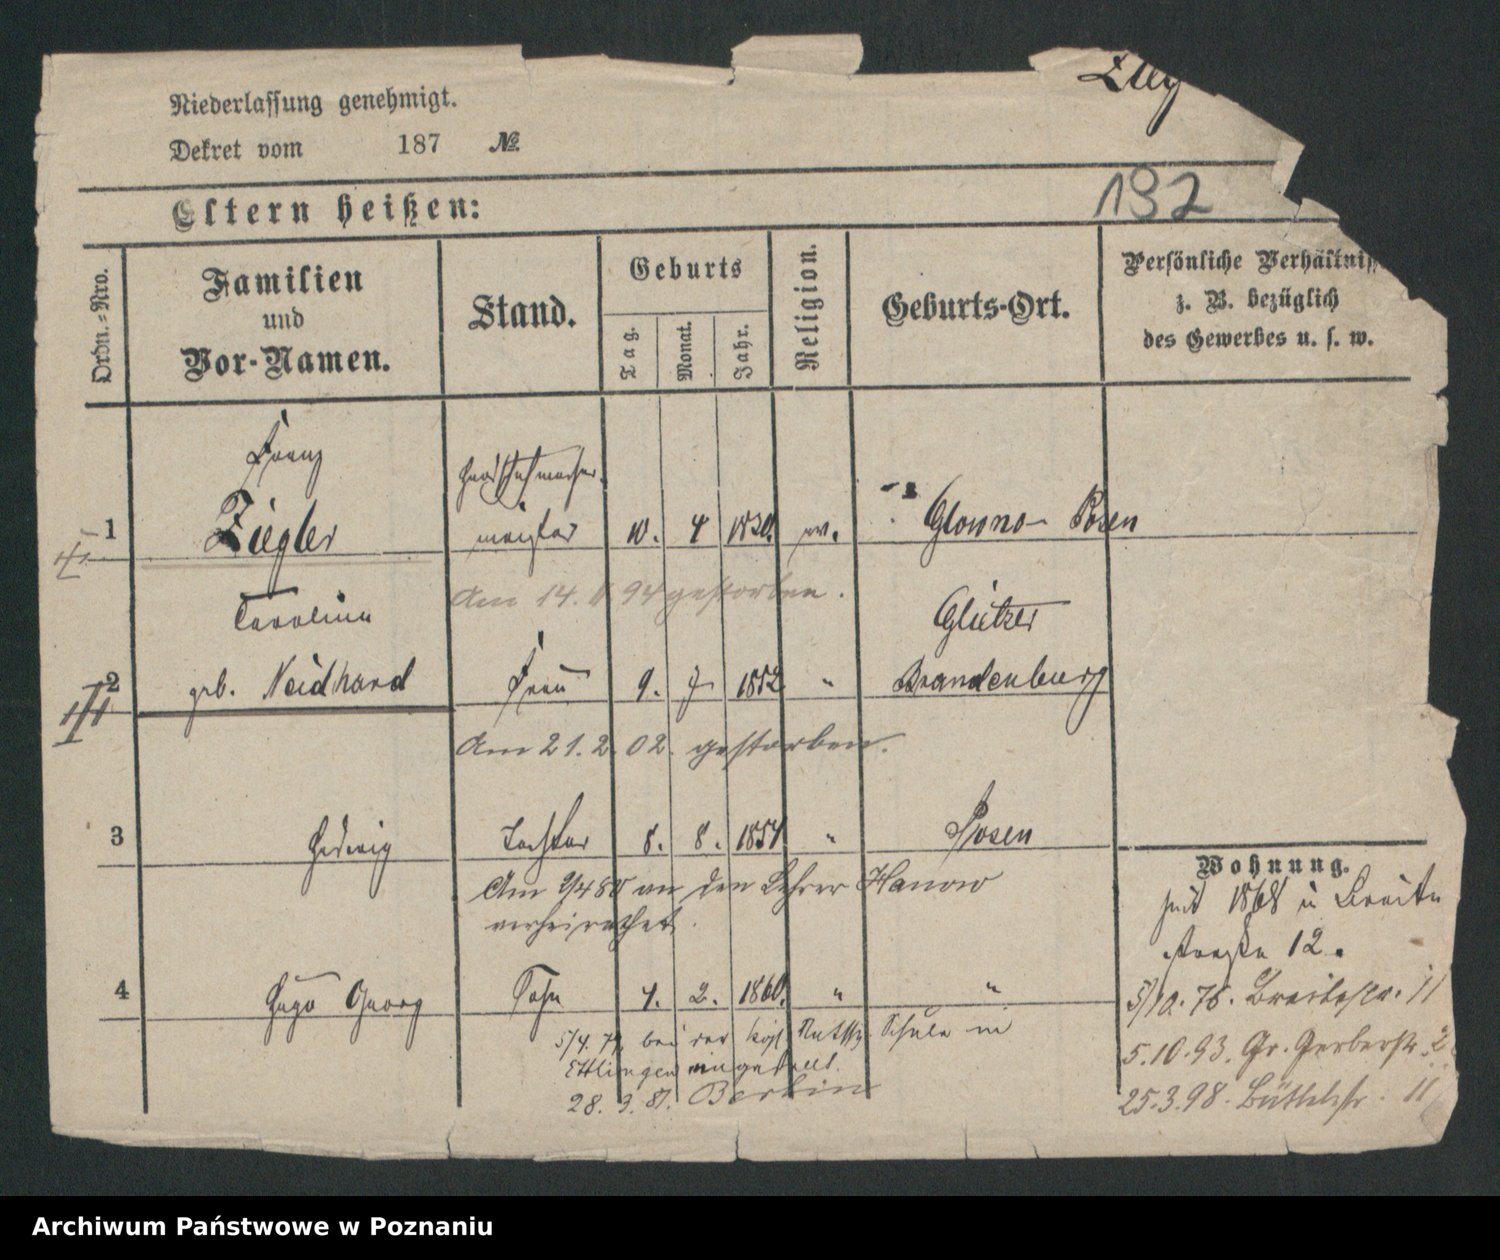 Zieg
Niederlassung genehmigt.
Dekret vom 187 №
Eltern heißen:
192
Ordn.-Nro.
Familien und Vor-Namen.
Stand.
Geburts
Tag.
Monat.
Jahr.
Religion.
Geburts-Ort.
Persönliche Verhältniss
z. B. bezüglich
des Gewerbes u. s. w.
Franz
Handschuhmacher
1 Ziegler meister 10. 4 1820. ev. Glowno Posen
Am 14. 94 gestorben.
Caroline Glietzer
2 geb. Neidhard Frau 9. 7 1852 " Brandenburg
Am 21. 2. 02. gestorben.
3 Hedwig Tochter 8. 8. 1854 " Posen
Am 80 an den Lehrer Hanow
verheirathet.
Wohnung.
seit 1868 Breite
straße 12.
4 Hugo Georg Sohn 4. 2. 1860. " "
5/10. 75. Breitestr. 11
5/4. 79. bei der kgl. Schule in
Ettlingen eingetreten.
5.10.93. Gr. Gerberstr. 2
28. 3. 87. Berlin
25.3.98. Büttelstr. 11
Archiwum Państwowe w Poznaniu